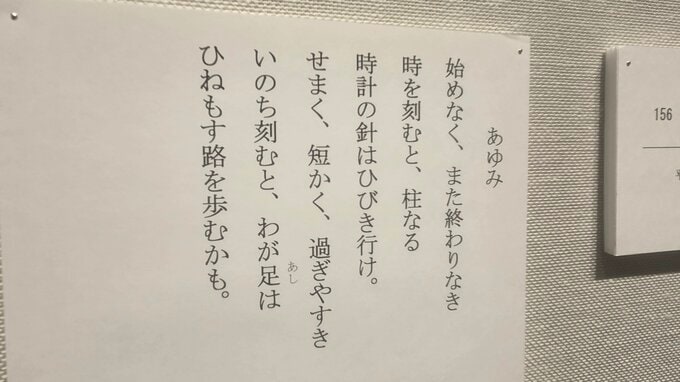 あゆみ
始めなく、また終わりなき
時を刻むと、柱なる
時計の針はひびき行け。
せまく、短かく、過ぎやすき
いのち刻むと、わが足は
あし
ひねもす路を歩むかも。
156